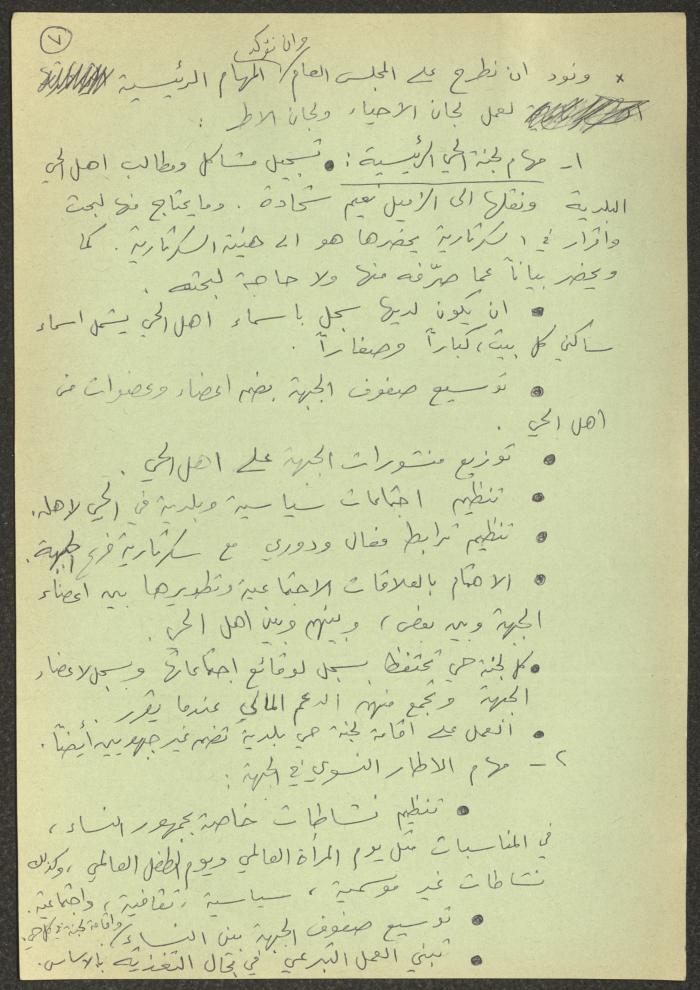 ٧
وان نؤكد
× ونود ان نطرح على المجلس العام / المهام الرئيسية
لعمل لجان الاحياء ولجان الاطر :
١- مهام لجنة الحي الرئيسية : • تسجيل مشاكل ومطالب اهل الحي
البلدية ونقلها الى الزميل نعيم شحادة . وما يحتاج منها لبحث
واقرار في السكرتارية يحضرها هو الى هيئة السكرتارية . كما
ويحضر بياناً عما صرّفه منها ولا حاجة لبحثه .
• ان يكون لديها سجل باسماء اهل الحي يشمل اسماء
ساكني كل بيت، كباراً وصغاراً .
• توسيع صفوف الجبهة بضم اعضاء وعضوات من
اهل الحي .
• توزيع منشورات الجبهة على اهل الحي .
• تنظيم اجتماعات سياسية وبلدية في الحي لاهله .
• تنظيم ترابط فعال ودوري مع سكرتارية فرع الجبهة .
• الاهتمام بالعلاقات الاجتماعية وتطويرها بين اعضاء
الجبهة وبين بعض ، وبينهم وبين اهل الحي .
• كل لجنة حي تحتفظ بسجل لوقائع اجتماعاتها وسجل لاعضاء
الجبهة وتجمع منهم الدعم المالي عندما يقرر .
• العمل على اقامة لجنة حي بلدية تضم غير جبهويين أيضاً .
٢- مهام الاطار النسوي في الجبهة :
• تنظيم نشاطات خاصة بجمهور النساء ،
في المناسبات مثل يوم المرأة العالمي ويوم الطفل العالمي ، وكذلك
نشاطات غير موسمية ، سياسية ، ثقافية ، واجتماعية .
• توسيع صفوف الجبهة بين النساء / واقامة لجنة في كل حي .
• تبني العمل التبرعي في مجال التغذية بالاساس .